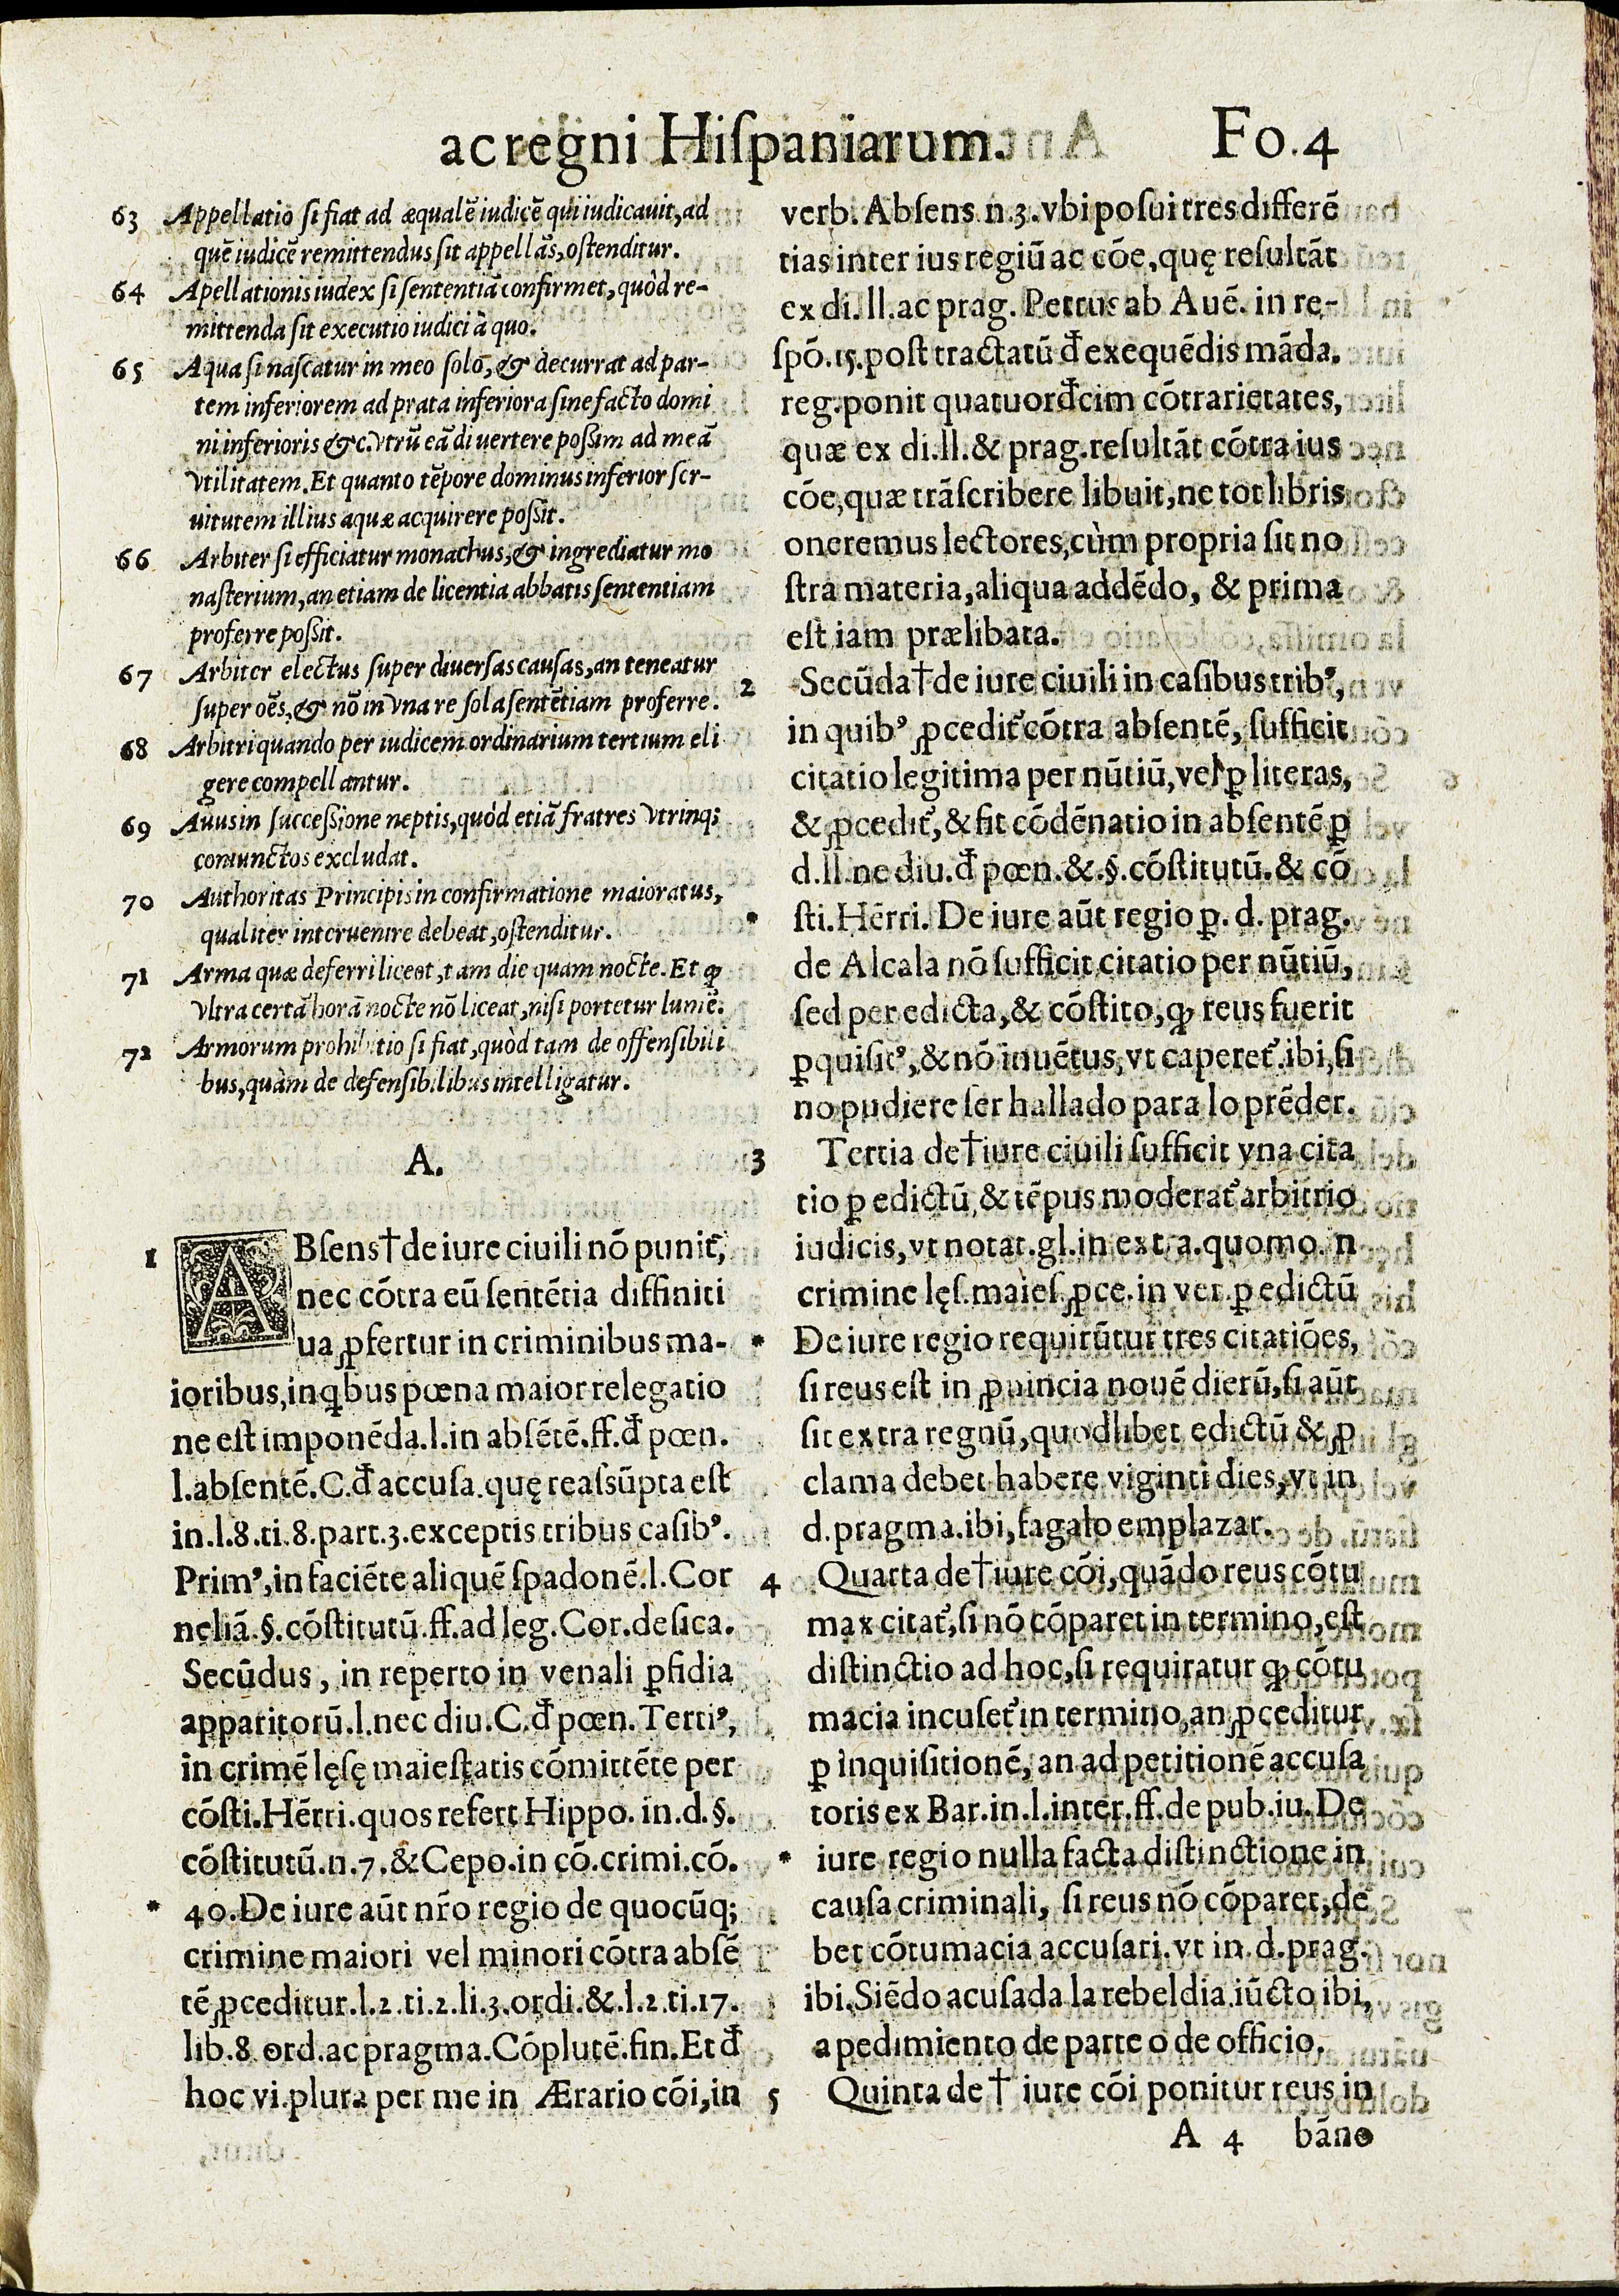 ac regni Hiſpaniarum.
Fo.4
63 Appellatio ſi fiat ad æqualē iudicē qui iudicauit, ad
quē iudicē remittendus ſit appellãs, oſtenditur.
64 Apellationis iudex ſi ſententiã confirmet, quòd re-
mittenda ſit executio iudici à quo.
65 Aqua ſi naſcatur in meo ſolo, & decurrat ad par-
tem inferiorem ad prata inferiora ſine facto domi
ni inferioris &c. vtrū eã diuertere poſſim ad meã
vtilitatem. Et quanto tēpore dominus inferior ſer-
uitutem illius aquæ acquirere poſſit.
66 Arbiter ſi efficiatur monachus, & ingrediatur mo
naſterium, an etiam de licentia abbatis ſententiam
proferre poſſit.
67 Arbiter electus ſuper diuerſas cauſas, an teneatur
ſuper oēs, & nō in vna re ſola ſentētiam proferre.
68 Arbitri quando per iudicem ordinarium tertium eli
gere compellantur.
69 Auus in ſucceſſione neptis, quòd etiã fratres vtrinq;
coniunctos excludat.
70 Authoritas Principis in confirmatione maioratus,
qualiter interuenire debeat, oſtenditur.
71 Arma quæ deferri liceat, tam die quam nocte. Et ꝙ
vltra certã horã nocte nō liceat, niſi portetur lumē.
72 Armorum prohibitio ſi fiat, quòd tam de offenſibili
bus, quàm de defenſibilibus intelligatur.
A.
1 ABſens† de iure ciuili nō punit᷑,
nec cōtra eū ſentētia diffiniti
ua ꝓfertur in criminibus ma-
ioribus, in qƀus pœna maior relegatio
ne eſt imponēda.l.in abſētē.ff.đ pœn.
l.abſentē.C.đ accuſa.quę reaſsūpta eſt
in.l.8.ti.8.part.3.exceptis tribus caſibꝰ.
Primꝰ, in faciēte aliquē ſpadonē.l.Cor
neliã.§.cōſtitutū.ff.ad leg.Cor.de ſica.
Secūdus, in reperto in venali ꝑfidia
apparitorū.l.nec diu.C.đ pœn. Tertiꝰ,
in crimē lęſę maieſtatis cōmittēte per
cōſti.Hērri.quos refert Hippo. in.d.§.
cōſtitutū.n.7.& Cepo.in cō.crimi.cō.
* 40.De iure aūt nr̃o regio de quocūq;
crimine maiori vel minori cōtra abſē
tē ꝓceditur.l.2.ti.2.li.3.ordi.&.l.2.ti.17.
lib.8.ord.ac pragma.Cōplutē.fin.Et đ
hoc vi.plura per me in Ærario cōi, in
verb. Abſens.n.3.vbi poſui tres differē
tias inter ius regiū ac cōe, quę reſultãt
ex di.ll.ac prag. Petrus ab Auē. in re-
ſpō.15.poſt tractatū đ exequēdis mãda.
reg.ponit quatuorđcim cōtrarietates,
quæ ex di.ll.& prag.reſultãt cōtra ius
cōe, quæ trãſcribere libuit, ne tot libris
oneremus lectores, cùm propria ſit no
ſtra materia, aliqua addēdo, & prima
eſt iam prælibata.
2 Secūda† de iure ciuili in caſibus tribꝰ,
in quibꝰ ꝓcedit᷑ cōtra abſentē, ſufficit
citatio legitima per nūtiū, vel ꝑ literas,
& ꝓcedit᷑, & fit cōdēnatio in abſentē ꝑ
d.ll.ne diu.đ pœn.&.§.cōſtitutū.& cō
* ſti.Hērri. De iure aūt regio ꝑ. d. prag.
de Alcala nō ſufficit citatio per nūtiū,
ſed per edicta, & cōſtito, ꝙ reus fuerit
ꝑquiſitꝰ, & nō inuētus, vt caperet᷑. ibi, ſi
no pudiere ſer hallado para lo prēder.
3 Tertia de† iure ciuili ſufficit vna cita
tio ꝑ edictū, & tēpus moderat᷑ arbitrio
iudicis, vt notat.gl.in extra.quomo.in
crimine lęſ.maieſ.ꝓce.in ver.ꝑ edictū
* De iure regio requirūtur tres citatiōes,
ſi reus eſt in ꝓuincia nouē dierū, ſi aūt
ſit extra regnū, quodlibet edictū & ꝓ
clama debet habere viginti dies, vt in
d.pragma.ibi, fagalo emplazar.
4 Quarta de† iure cōi, quãdo reus cōtu
max citat᷑, ſi nō cōparet in termino, eſt
diſtinctio ad hoc, ſi requiratur ꝙ cōtu
macia incuſet᷑ in termino, an ꝓceditur
ꝑ inquiſitionē, an ad petitionē accuſa
toris ex Bar.in.l.inter.ff.de pub.iu.De
* iure regio nulla facta diſtinctione in
cauſa criminali, ſi reus nō cōparet, de
bet cōtumacia accuſari.vt in.d.prag.
ibi, Siēdo acuſada la rebeldia.iūcto ibi,
a pedimiento de parte o de officio.
5 Quinta de† iure cōi ponitur reus in
A 4 bãno